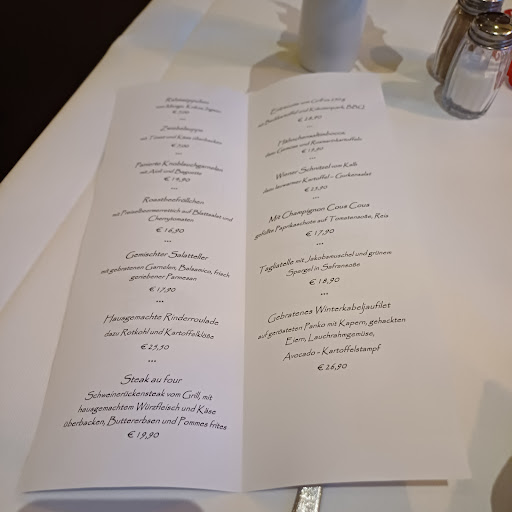 Rahmsuppchen
€ 7,90
***
Zwiebelsuppe
mit Toast und Käse überbacken
€ 7,90
***
Panierte Knoblauchgarnelen
mit Aioli und Baguette
€ 16,90
***
Roastbeefröllchen
mit Preiselbeermeerrettich auf Blattsalat und
Cherrytomaten
€ 16,90
***
Gemischter Salatteller
mit gebratenen Garnelen, Balsamico, frisch
geriebener Parmesan
€ 17,90
***
Hausgemachte Rinderroulade
dazu Rotkohl und Kartoffelklöße
€ 25,50
***
Steak au four
Schweinerückensteak vom Grill, mit
hausgemachtem Würzfleisch und Käse
überbacken, Buttererbsen und Pommes frites
€ 19,90
€ 28,90
***
dazu Gemüse und Rosmarinkartoffeln
***
Wiener Schnitzel vom Kalb
dazu lauwarmes Kartoffel - Gurkensalat
€ 25,90
***
Mit Champignon Cous Cous
gefüllte Paprikaschote auf Tomatensoße, Reis
€ 17,90
***
Tagliatelle mit Jakobsmuschel und grünem
Spargel in Safransoße
€ 18,90
***
Gebratenes Winterkabeljaufilet
auf gerösteten Panko mit Kapern, gehackten
Eiern, Lauchrahmgemüse,
Avocado - Kartoffelstampf
€ 26,90